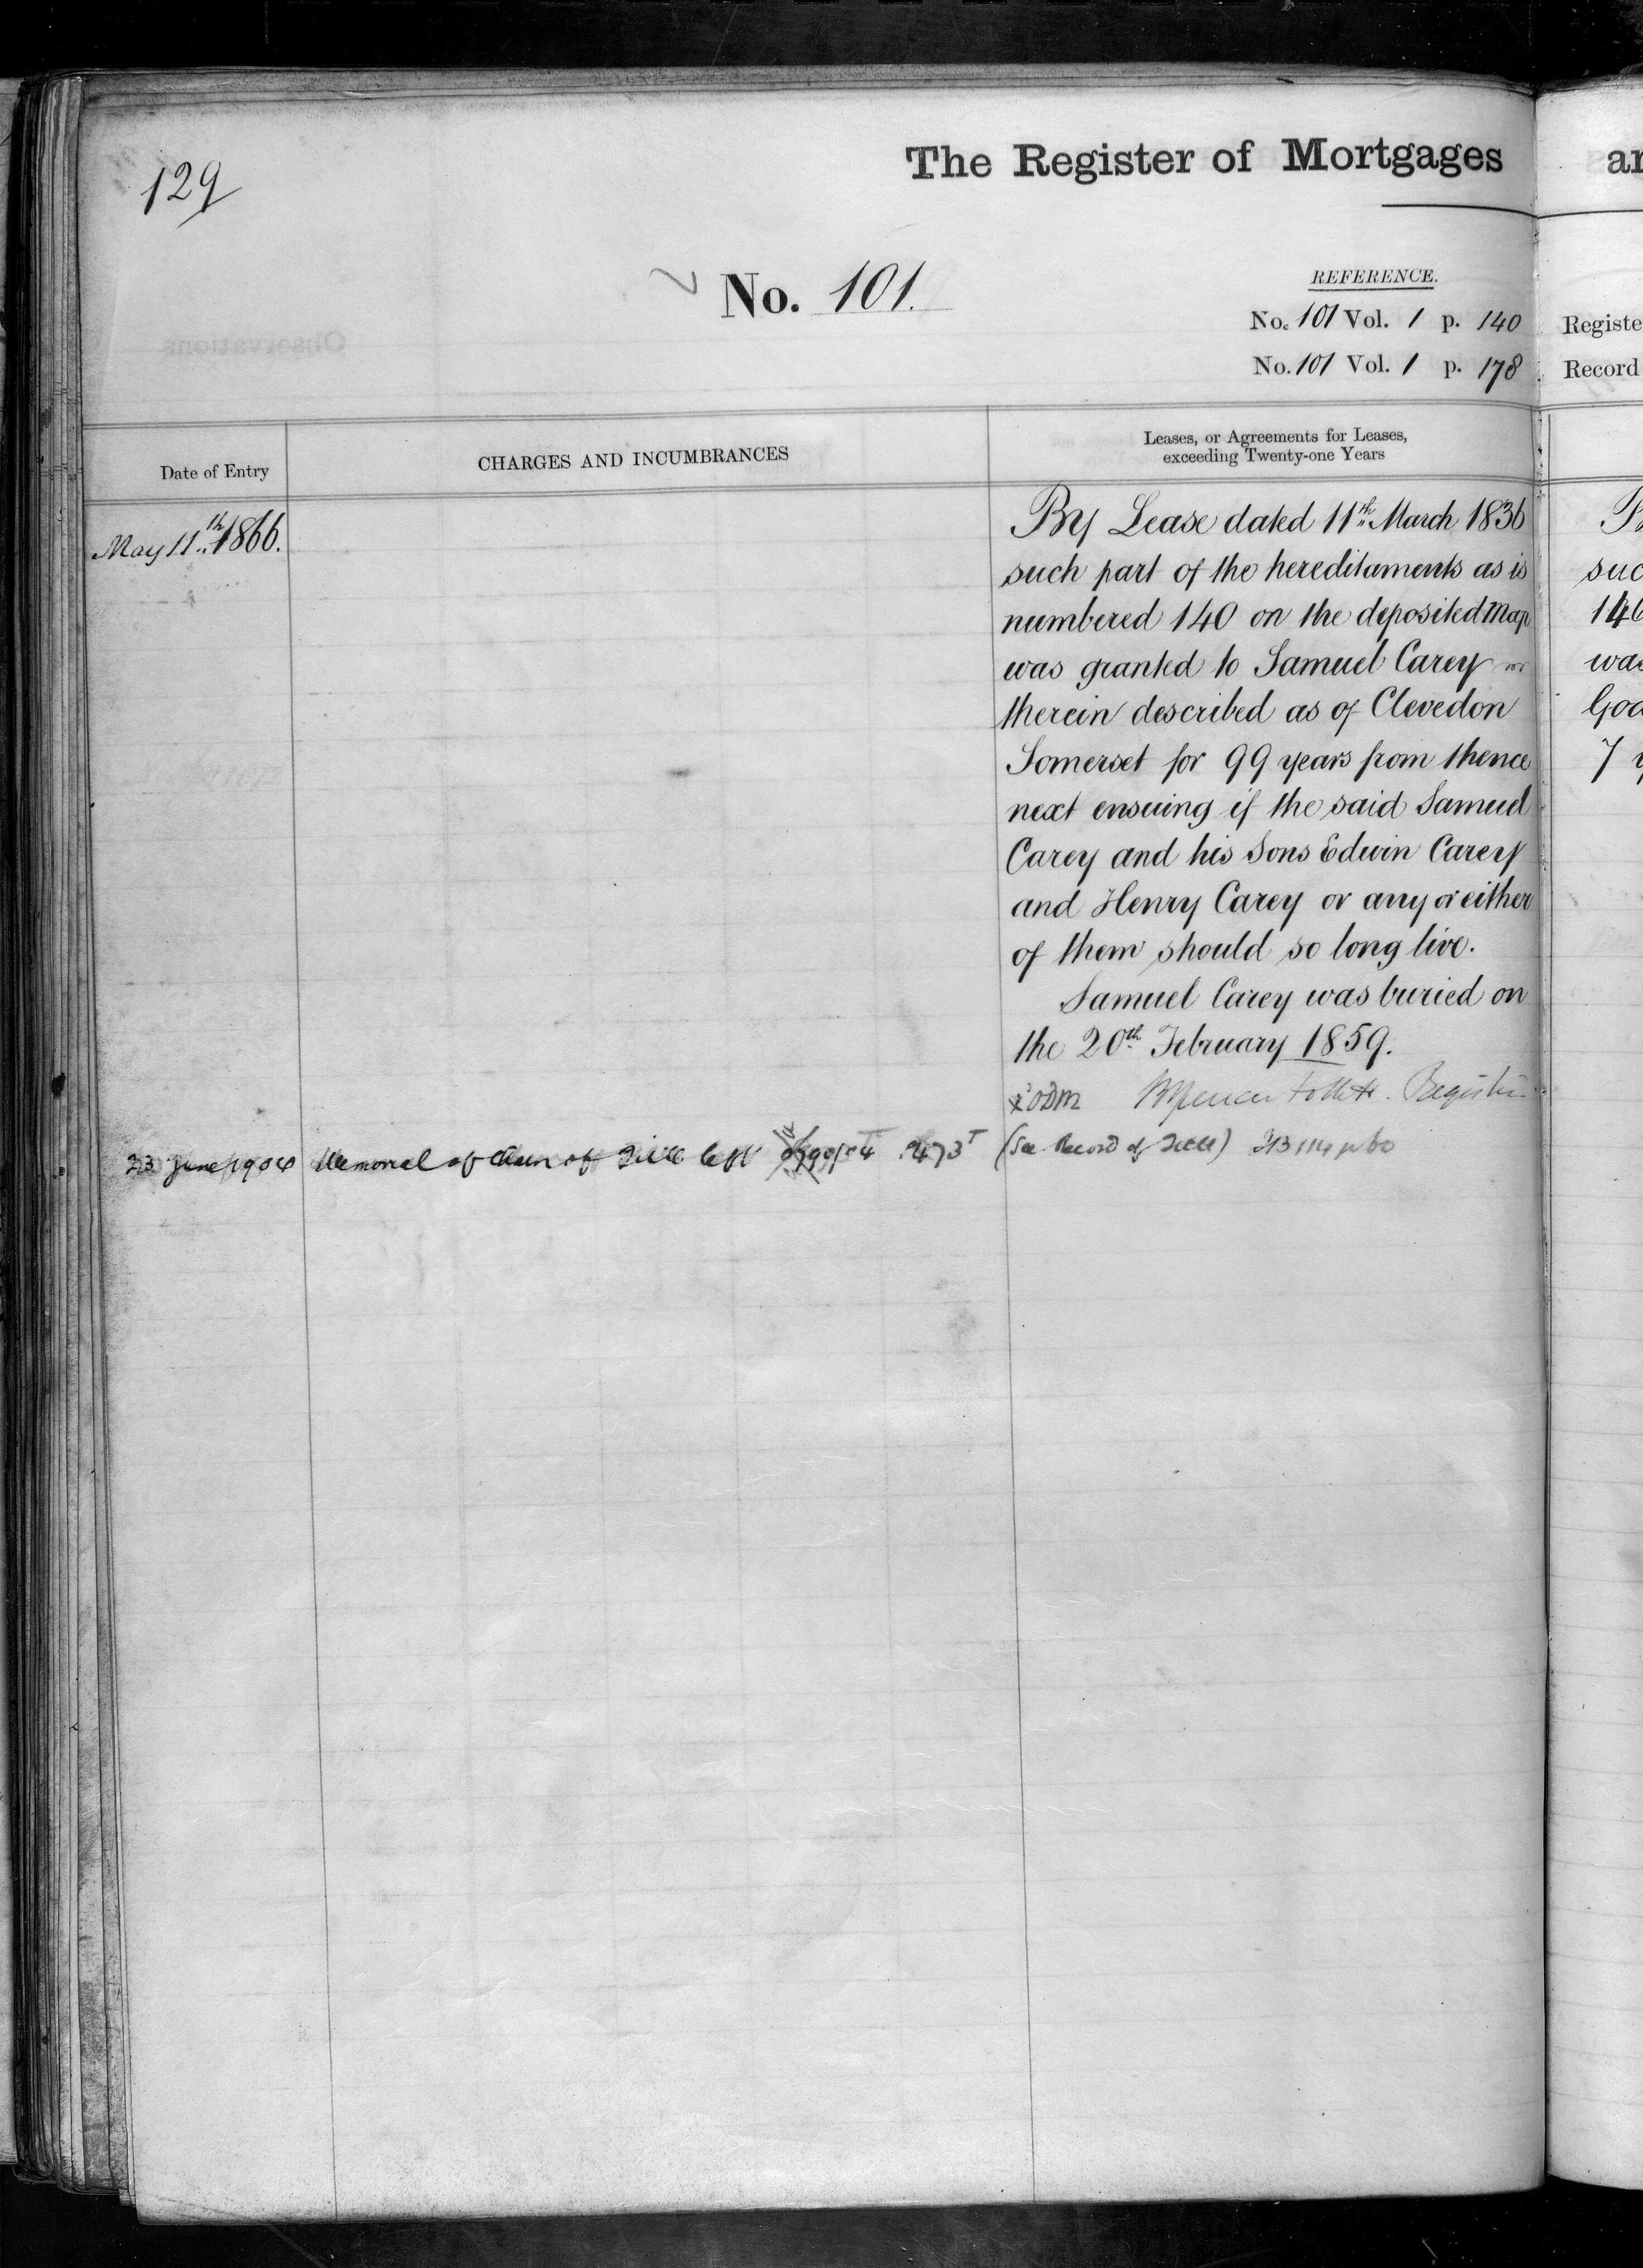 129
The Register of Mortgages
No. 101.
REFERENCE.
No. 101 Vol. 1 p. 140
No. 101 Vol. 1 p. 178
Registe
Record
Date of Entry
CHARGES AND INCUMBRANCES
Leases, or Agreements for Leases,
exceeding Twenty-one Years
May 11th 1866.
By Lease dated 11th March 1836
such part of the hereditaments as is
numbered 140 on the deposited Map
was granted to Samuel Carey
therein described as of Clevedon
Somerset for 99 years from thence
next ensuing if the said Samuel
Carey and his Sons Edwin Carey
and Henry Carey or any or either
of them should so long live.
Samuel Carey was buried on
the 20th February 1859.
Spencer Follett. Registrar
23 June 1904 Memorial of of Title left 473T (See Record of Title) p 60
suc
146
was
7